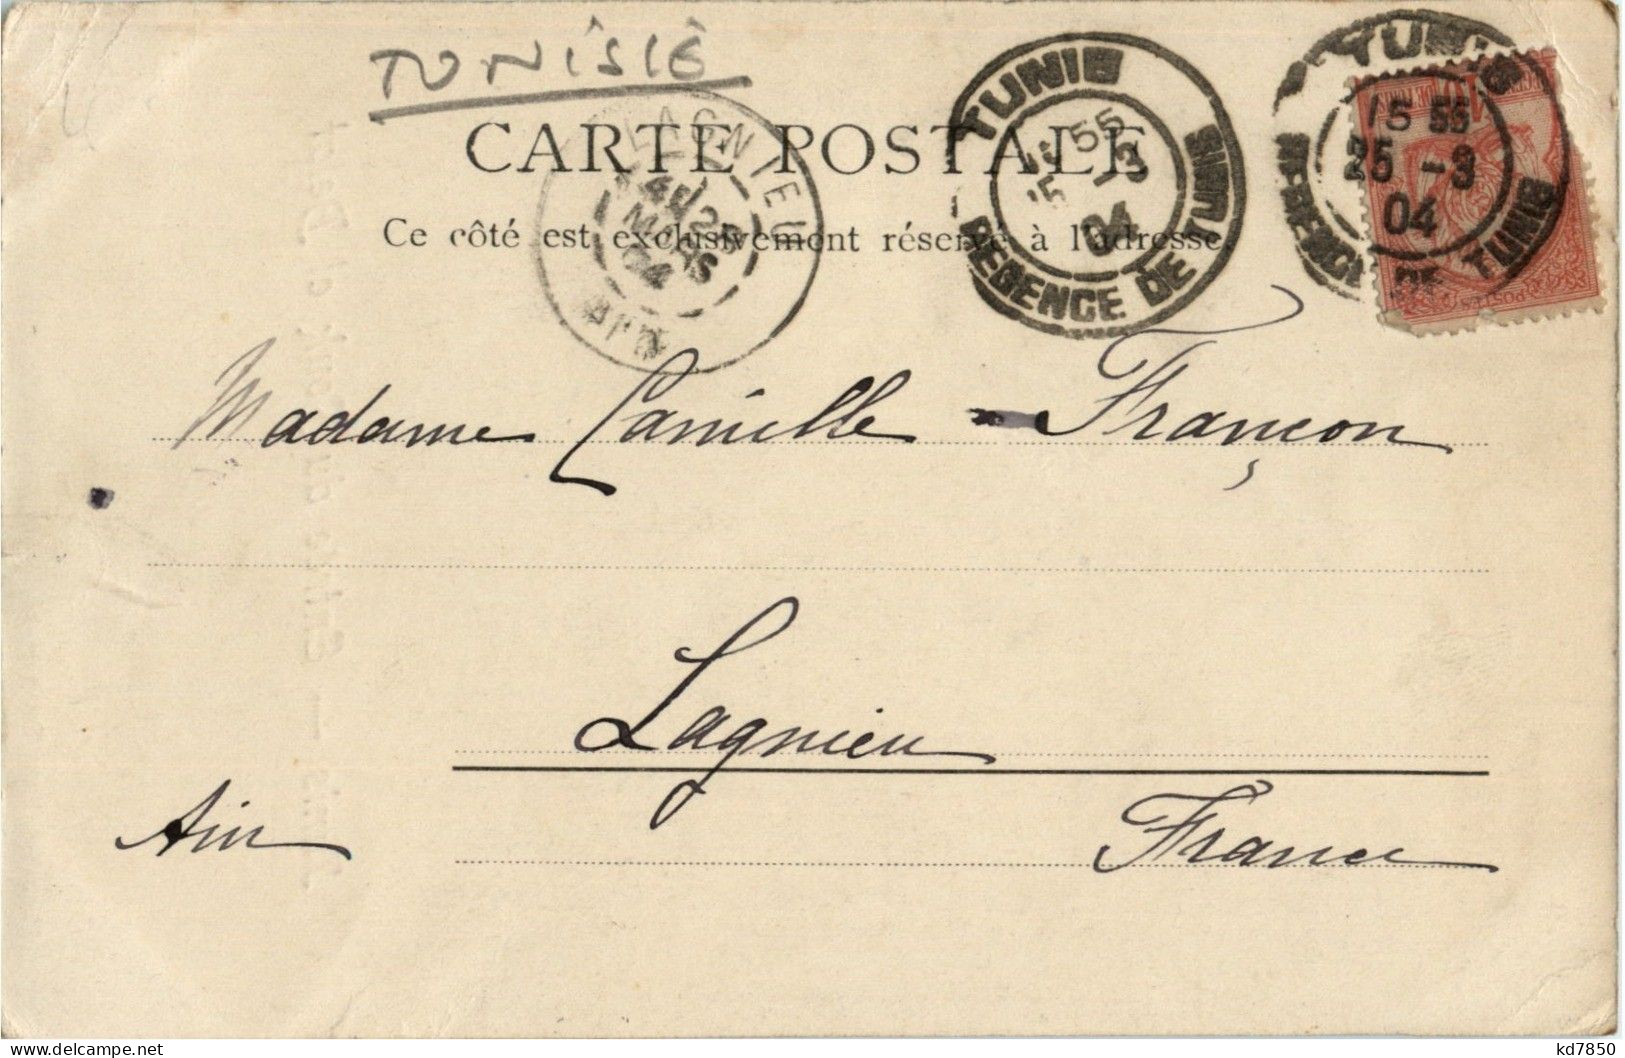 TUNISIE
CARTE POSTALE
Ce côté est exclusivement réservé à l'adresse.
LAGNIEU
MARS
04
AIN
TUNIS
15 55
-3
04
REGENCE DE TUNIS
TUNIS
15 55
25 -3
04
REGENCE DE TUNIS
POSTES
Madame Camille Françon
Lagnieu
Ain
France
delcampe.net
kd7850